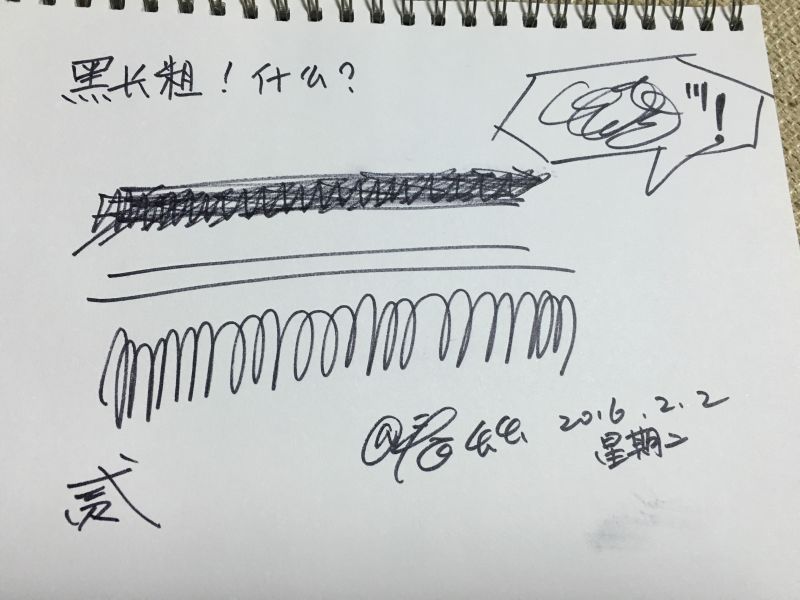 黑长粗！什么？
！
2016.2.2
星期二
贰